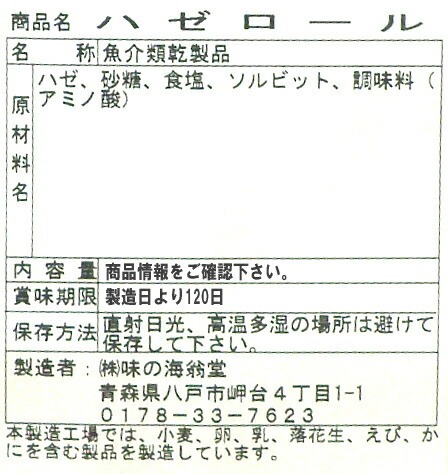 商品名 ハゼロール
名称 魚介類乾製品
原材料名 ハゼ、砂糖、食塩、ソルビット、調味料（
アミノ酸）
内容量 商品情報をご確認下さい。
賞味期限 製造日より120日
保存方法 直射日光、高温多湿の場所は避けて
保存して下さい。
製造者：㈱味の海翁堂
青森県八戸市岬台４丁目1-1
０１７８－３３－７６２３
本製造工場では、小麦、卵、乳、落花生、えび、か
にを含む製品を製造しています。